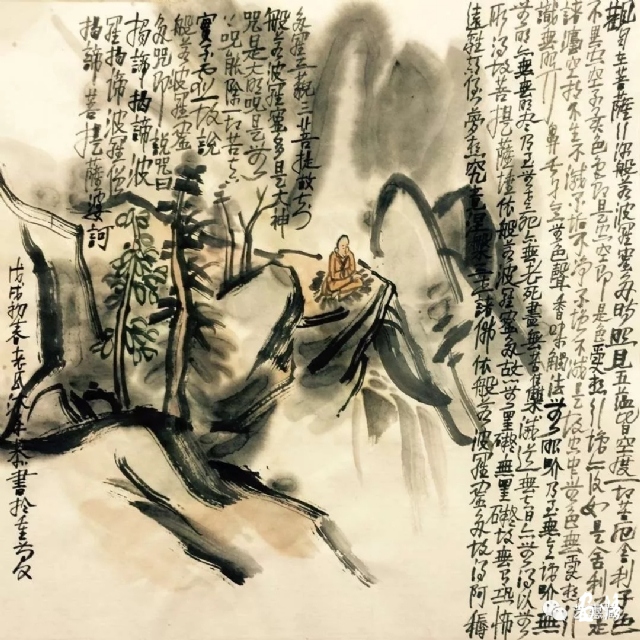 觀自在菩薩行深般若波羅蜜多時照見五蘊皆空度一切苦厄舍利子色
不異空空不異色色即是空空即是色受想行識亦復如是舍利子是
諸法空相不生不滅不垢不淨不增不減是故空中無色無受想行
識無眼耳鼻舌身意無色聲香味觸法無眼界乃至無意識界無
無明亦無無明盡乃至無老死亦無老死盡無苦集滅道無智亦無得以無
所得故菩提薩埵依般若波羅蜜多故心無罣礙無罣礙故無有恐怖
遠離顛倒夢想究竟涅槃三世諸佛依般若波羅蜜多故得阿耨
多羅三藐三菩提故知
般若波羅蜜多是大神
咒是大明咒是無上
咒能除一切苦真
實不虛故說
般若波羅蜜
多咒即說咒曰
揭諦揭諦波
羅揭諦波羅僧
揭諦菩提薩婆訶
戊戌初春書於